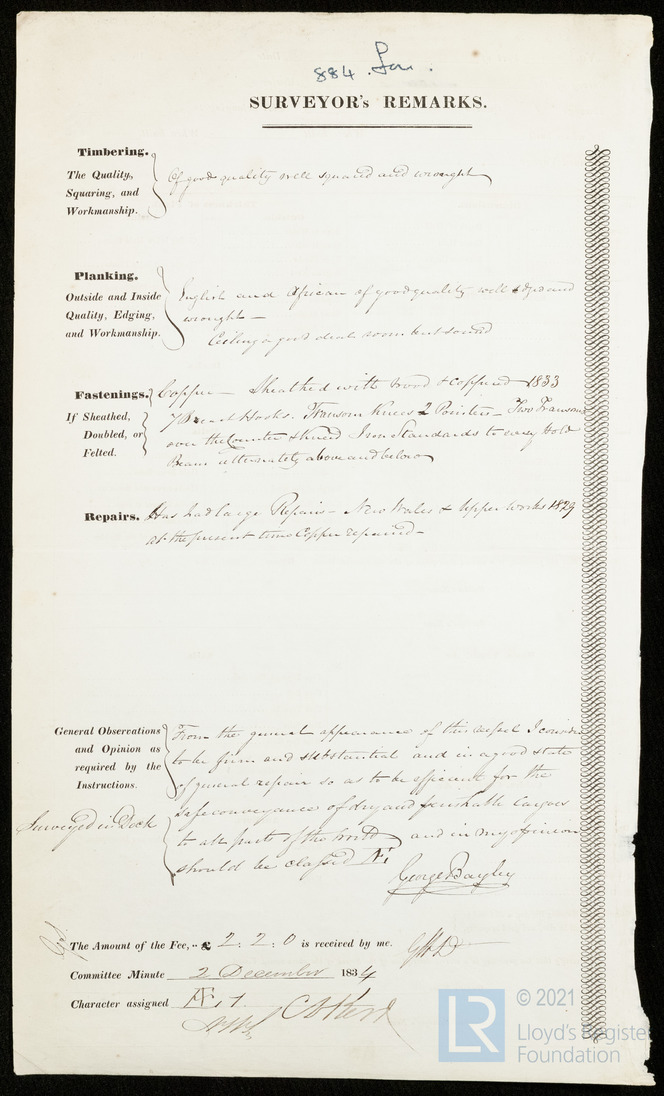 884. Lon.
SURVEYOR's REMARKS.
Timbering.
The Quality,
Squaring, and
Workmanship.
Of good quality well squared and wrought
Planking.
Outside and Inside
Quality, Edging,
and Workmanship.
English and African of good quality well edged and
wrought —
Ceiling in good deals some but sound
Fastenings.
If Sheathed,
Doubled, or
Felted.
Copper — Sheathed with wood & coppered 1833
7 Breast Hooks. Transom Knees 2 Pointers — Two Transoms
over the Counter & Kneed Iron Standards to every Hold
Beam alternately above and below
Repairs.
Has had large Repairs — New Wales & Upper works 1829
at the present time Copper repaired —
General Observations
and Opinion as
required by the
Instructions.
Surveyed in Dock
From the general appearance of this Vessel I consider
to be firm and substantial and in a good state
of general repair so as to be efficient for the
safe conveyance of dry and perishable cargoes
to all parts of the world and in my opinion
should be classed Æ1
George Bayley
The Amount of the Fee, £ 2 : 2 : 0 is received by me.
Committee Minute 2 December 1834
Character assigned Æ 1
© 2021
Lloyd's Register
Foundation
LR